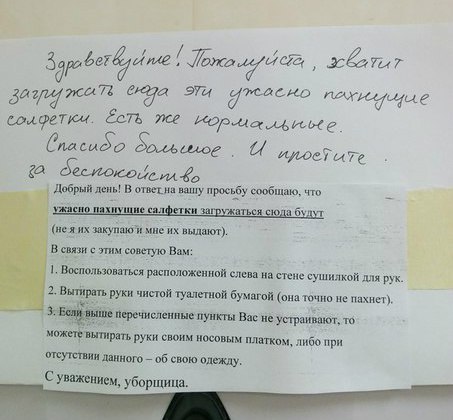 Здравствуйте! Пожалуйста, хватит
загружать сюда эти ужасно пахнущие
салфетки. Есть же нормальные.
Спасибо большое. И простите
за беспокойство.
Добрый день! В ответ на вашу просьбу сообщаю, что
ужасно пахнущие салфетки загружаться сюда будут
(не я их закупаю и мне их выдают).
В связи с этим советую Вам:
1. Воспользоваться расположенной слева на стене сушилкой для рук.
2. Вытирать руки чистой туалетной бумагой (она точно не пахнет).
3. Если выше перечисленные пункты Вас не устраивают, то
можете вытирать руки своим носовым платком, либо при
отсутствии данного – об свою одежду.
С уважением, уборщица.